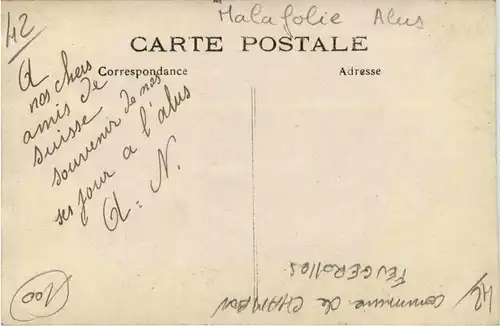 42
Malafolie Alus
CARTE POSTALE
Correspondance
Adresse
A
nos chers
amis de
suisse
souvenir de nos
ses jour a l'alus
A. N.
100
42 commune de CHAMBON
FEUGEROLLES